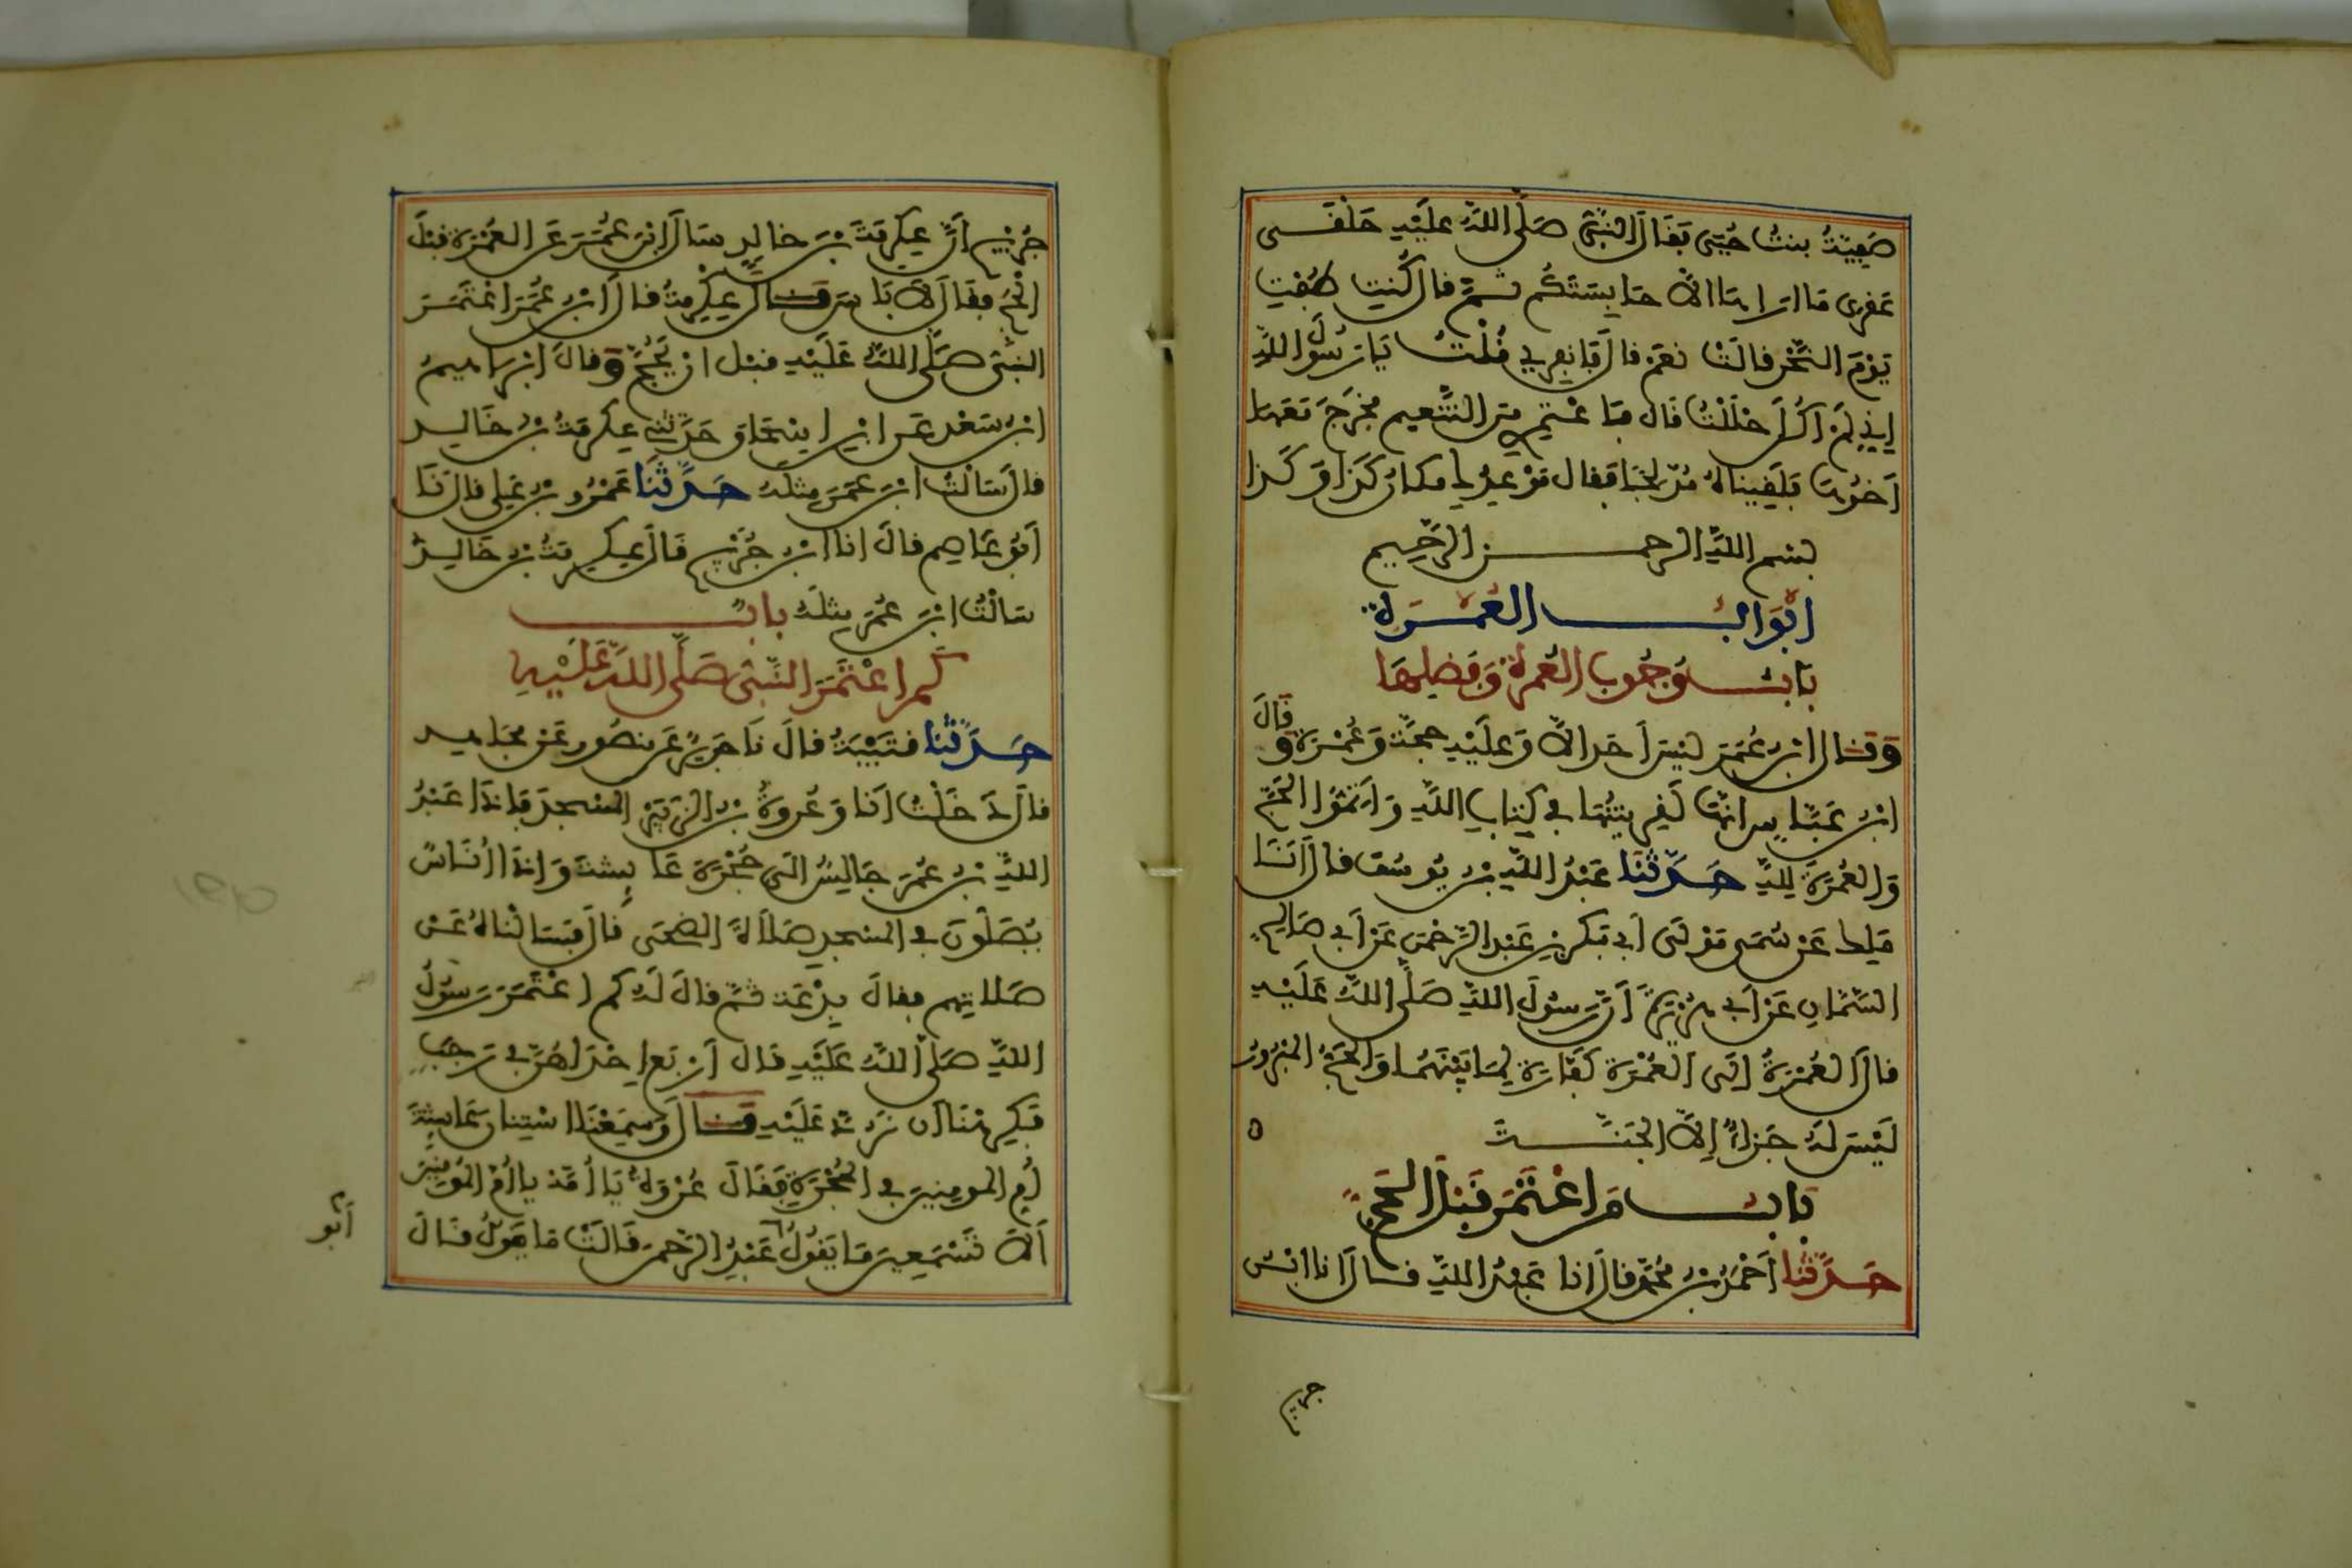 صَفِيَّةُ بنتُ حُيَىّ فَقَالَ النَّبِىُّ صَلَّى اللهُ عَلَيْهِ حَلْقَى
عَقْرى مَا اراهَا الاَّ حَابِسَتَكُم ثُمَّ قال كُنتِ طُفْتِ
يَوْمَ النَّحْرِ قالَتْ نعَمْ قال فَانْفِرِي قُلْتُ يَا رَسُولَ اللهِ
إِنِّي لَمْ أكُنْ حَلَلْتُ قَال فَاعْتَمِرِي مِنَ التَّنْعِيمِ فخَرَجَ مَعَهَا
أَخُوهَا فَلَقِينَاهُ مُدَّلِجًا فقال مَوْعِدُكِ مكان كَذَا وَكَذا
بسم اللهِ الرحمن الرَّحِيم
أبْوَابُ العُمْرَةِ
بَابُ وُجُوبِ العُمْرَةِ وَفَضْلِهَا
وَقَال ابْنُ عُمَرَ لَيْسَ أحَد الاَّ وَعَلَيْهِ حجَّة وَعُمْرَة وقَالَ
ابْنُ عَبَّاسٍ انَّهَا لَقَرِينَتُهَا فِي كِتَابِ اللهِ وَأَتِمُّوا الحَجَّ
وَالعُمْرَةَ لِلهِ حَدَّثَنَا عَبْدُ اللهِ بْنُ يُوسُفَ قال أَنَا
مَلِك عَنْ سُمَىٍّ مَوْلَى أَبِي بَكْرِ بْنِ عَبْدِ الرَّحْمَنِ عَنْ أَبِي صَالِحٍ
السَّمَّانِ عَنْ أَبِي هُرَيْرَةَ أَنَّ رَسُولَ اللهِ صَلَّى اللهُ عَلَيْهِ
قالَ العُمْرَةُ إلَى العُمْرَةِ كَفَّارَة لِمَا بَيْنَهُمَا وَالحَجُّ المَبْرُورُ
لَيْسَ لَهُ جَزَاءٌ إِلاَّ الجَنَّةَ ه
بَابُ مَنِ اعْتَمَرَ قَبْلَ الحَجِّ
حَدَّثَنَا أَحْمَدُ بْنُ مُحَمَّد قال انا عَبْدُ اللهِ قال انا ابْنُ
جريج
جُرَيْجٍ أَنَّ عِكْرِمَةَ بْنَ خالِدٍ سَأَلَ ابْنَ عُمَرَ عَنِ العُمْرَةِ قَبْلَ
الْحَجِّ فقَالَ لاَ بَاسَ قَالَ عِكْرِمَةُ قالَ ابْنُ عُمَرَ اعْتَمَرَ
النَّبِىُّ صَلَّى اللهُ عَلَيْهِ قبْل انْ يَحُجَّ وَقالَ ابْرَاهِيمُ
ابْنُ سَعْدٍ عَنِ ابْنِ اسْحَاق حَدَّثَنِي عِكْرِمَةُ بْنُ خَالِدٍ
قال سَأَلْتُ ابْنَ عُمَرَ مِثْلَهُ حَدَّثَنَا عَمْرُو بْنُ عَلِي قال نَا
أَبُو عَاصِمٍ قالَ انا ابْنُ جُرَيْجٍ قَالَ عِكْرِمَةُ بْنُ خَالِدٍ
سَأَلْتُ ابْنَ عُمَرَ مِثْلَهُ بَابُ
كَمِ اعْتَمَرَ النَّبِىُّ صَلَّى اللهُ عَلَيْهِ
حَدَّثَنَا قُتَيْبَةُ قالَ نَا جَرِيرٌ عَن مَنصُورٍ عَنْ مجَاهِدٍ
قالَ دَخَلْتُ أَنَا وَعُرْوَةُ بْنُ الزُّبَيْرِ المسْجدَ فَإذَا عَبْدُ
اللهِ بْنُ عُمَرَ جَالِسٌ إلَى حُجْرَةِ عَايِشةَ وَإذَا أُنَاسٌ
يُصَلُّونَ فِي المَسْجِدِ صَلاَةَ الضُّحَى قَال فَسَأَلْنَاهُ عَنْ
صَلاتِهِم فقالَ بِدْعَة ثُمَّ قالَ لَهُ كمِ اعْتَمَرَ رَسُولُ
اللهِ صَلَّى اللهُ عَلَيْهِ قَالَ أَرْبَع إحْدَاهُنَّ فِي رَجَبٍ
فَكَرِهْنَا أن نَرُدَّ عَلَيْهِ قَالَ وَسَمِعْنَا اسْتِنَانَ عَايِشَةَ
أُمِّ المومِنِينَ فِي الحُجْرَةِ فَقَالَ عُرْوَةُ يَا أُمَّهْ يا أُمَّ المُومِنِينَ
أَلاَ تَسْمَعِينَ مَا يَقُولُ أبو عَبْدِ الرَّحْمنِ قَالَتْ مَا يَقُولُ قَالَ
أبو